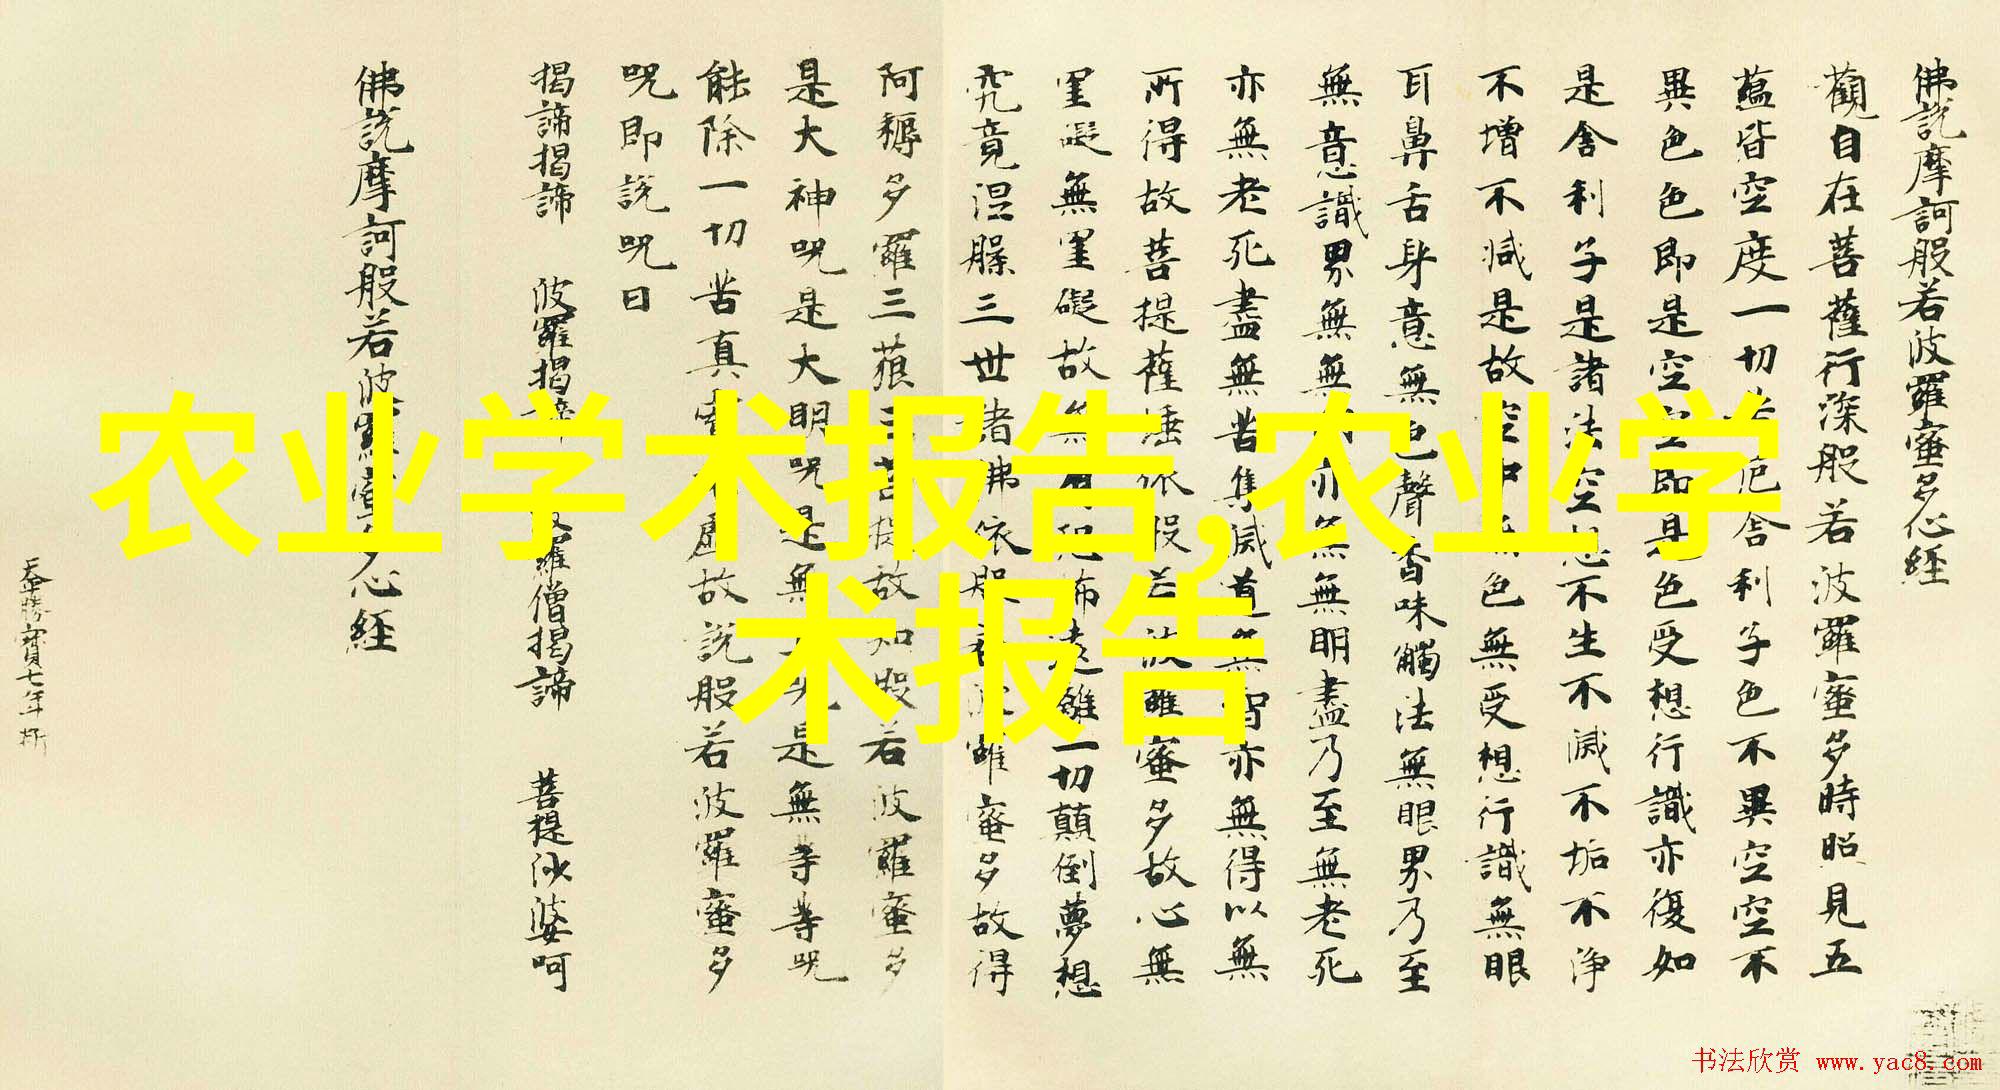 农业学术报告,农业学
术报告
佛說摩訶般若波羅蜜多心經
觀自在菩薩行深般若波羅蜜多時照見五
蘊皆空度一切苦厄舍利子色不異空空不
異色色即是空空即是色受想行識亦復如
是舍利子是諸法空想不生不滅不垢不淨
不增不減是故空中無色無受想行識無眼
耳鼻舌身意無色聲香味觸法無眼界乃至
無意識界無無明亦無無明盡乃至無老死
亦無老死盡無苦集滅道無智亦無得以無
所得故菩提薩埵依般若波羅蜜多故心無
罣礙無罣礙故無有恐怖遠離一切顛倒夢想
究竟涅槃三世諸佛依般若波羅蜜多故得
阿耨多羅三藐三菩提故知般若波羅蜜多
是大神咒是大明咒是無上咒是無等等咒
能除一切苦真實不虛故說般若波羅蜜多
咒即說咒曰
揭諦揭諦 波羅揭諦 波羅僧揭諦 菩提沙婆呵
佛說摩訶般若波羅蜜多心經
勝寶七年
书法欣赏 www.yac8.com